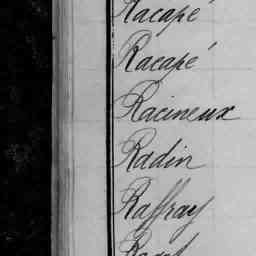 Racapé
Racapé
Racineux
Radin
Raffray